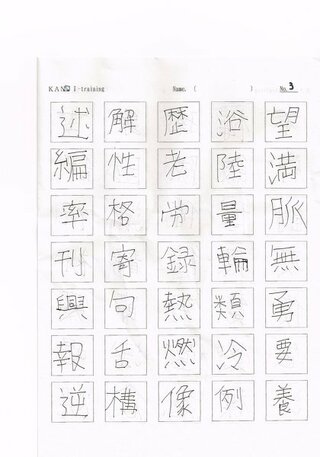 KANJI-training Name. ( ) No. 3
述 解 歴 浴 望
編 性 老 陸 満
率 格 労 量 脈
刊 寄 録 輪 無
興 句 熱 類 勇
報 舌 燃 冷 要
逆 構 像 例 養